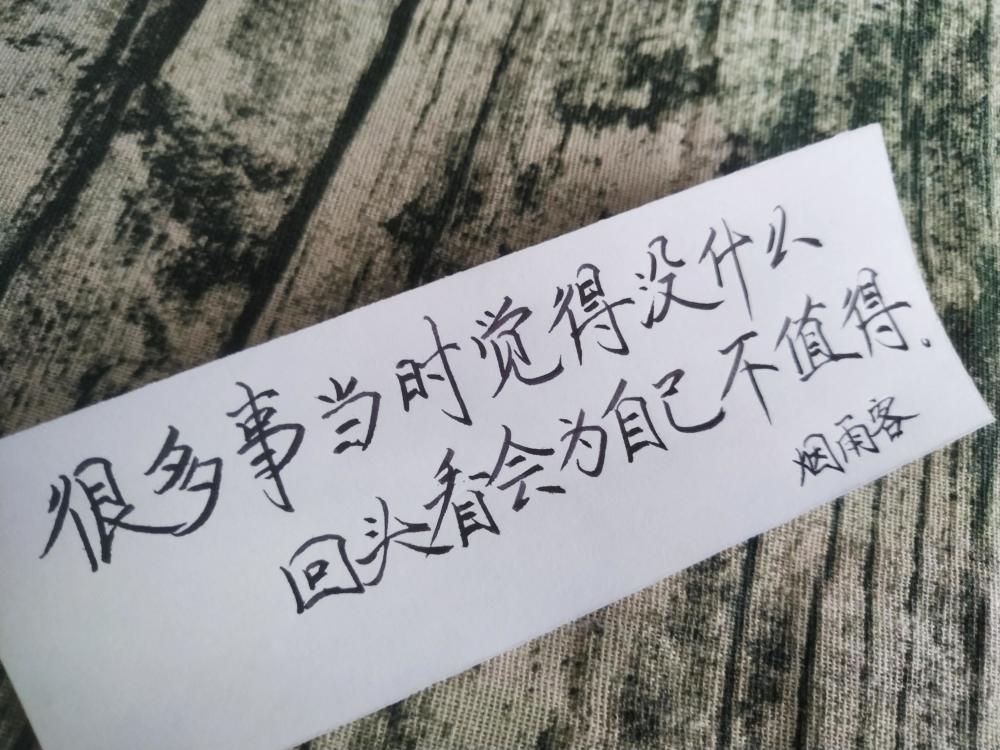 很多事当时觉得没什么
回头看会为自己不值得.
烟雨客